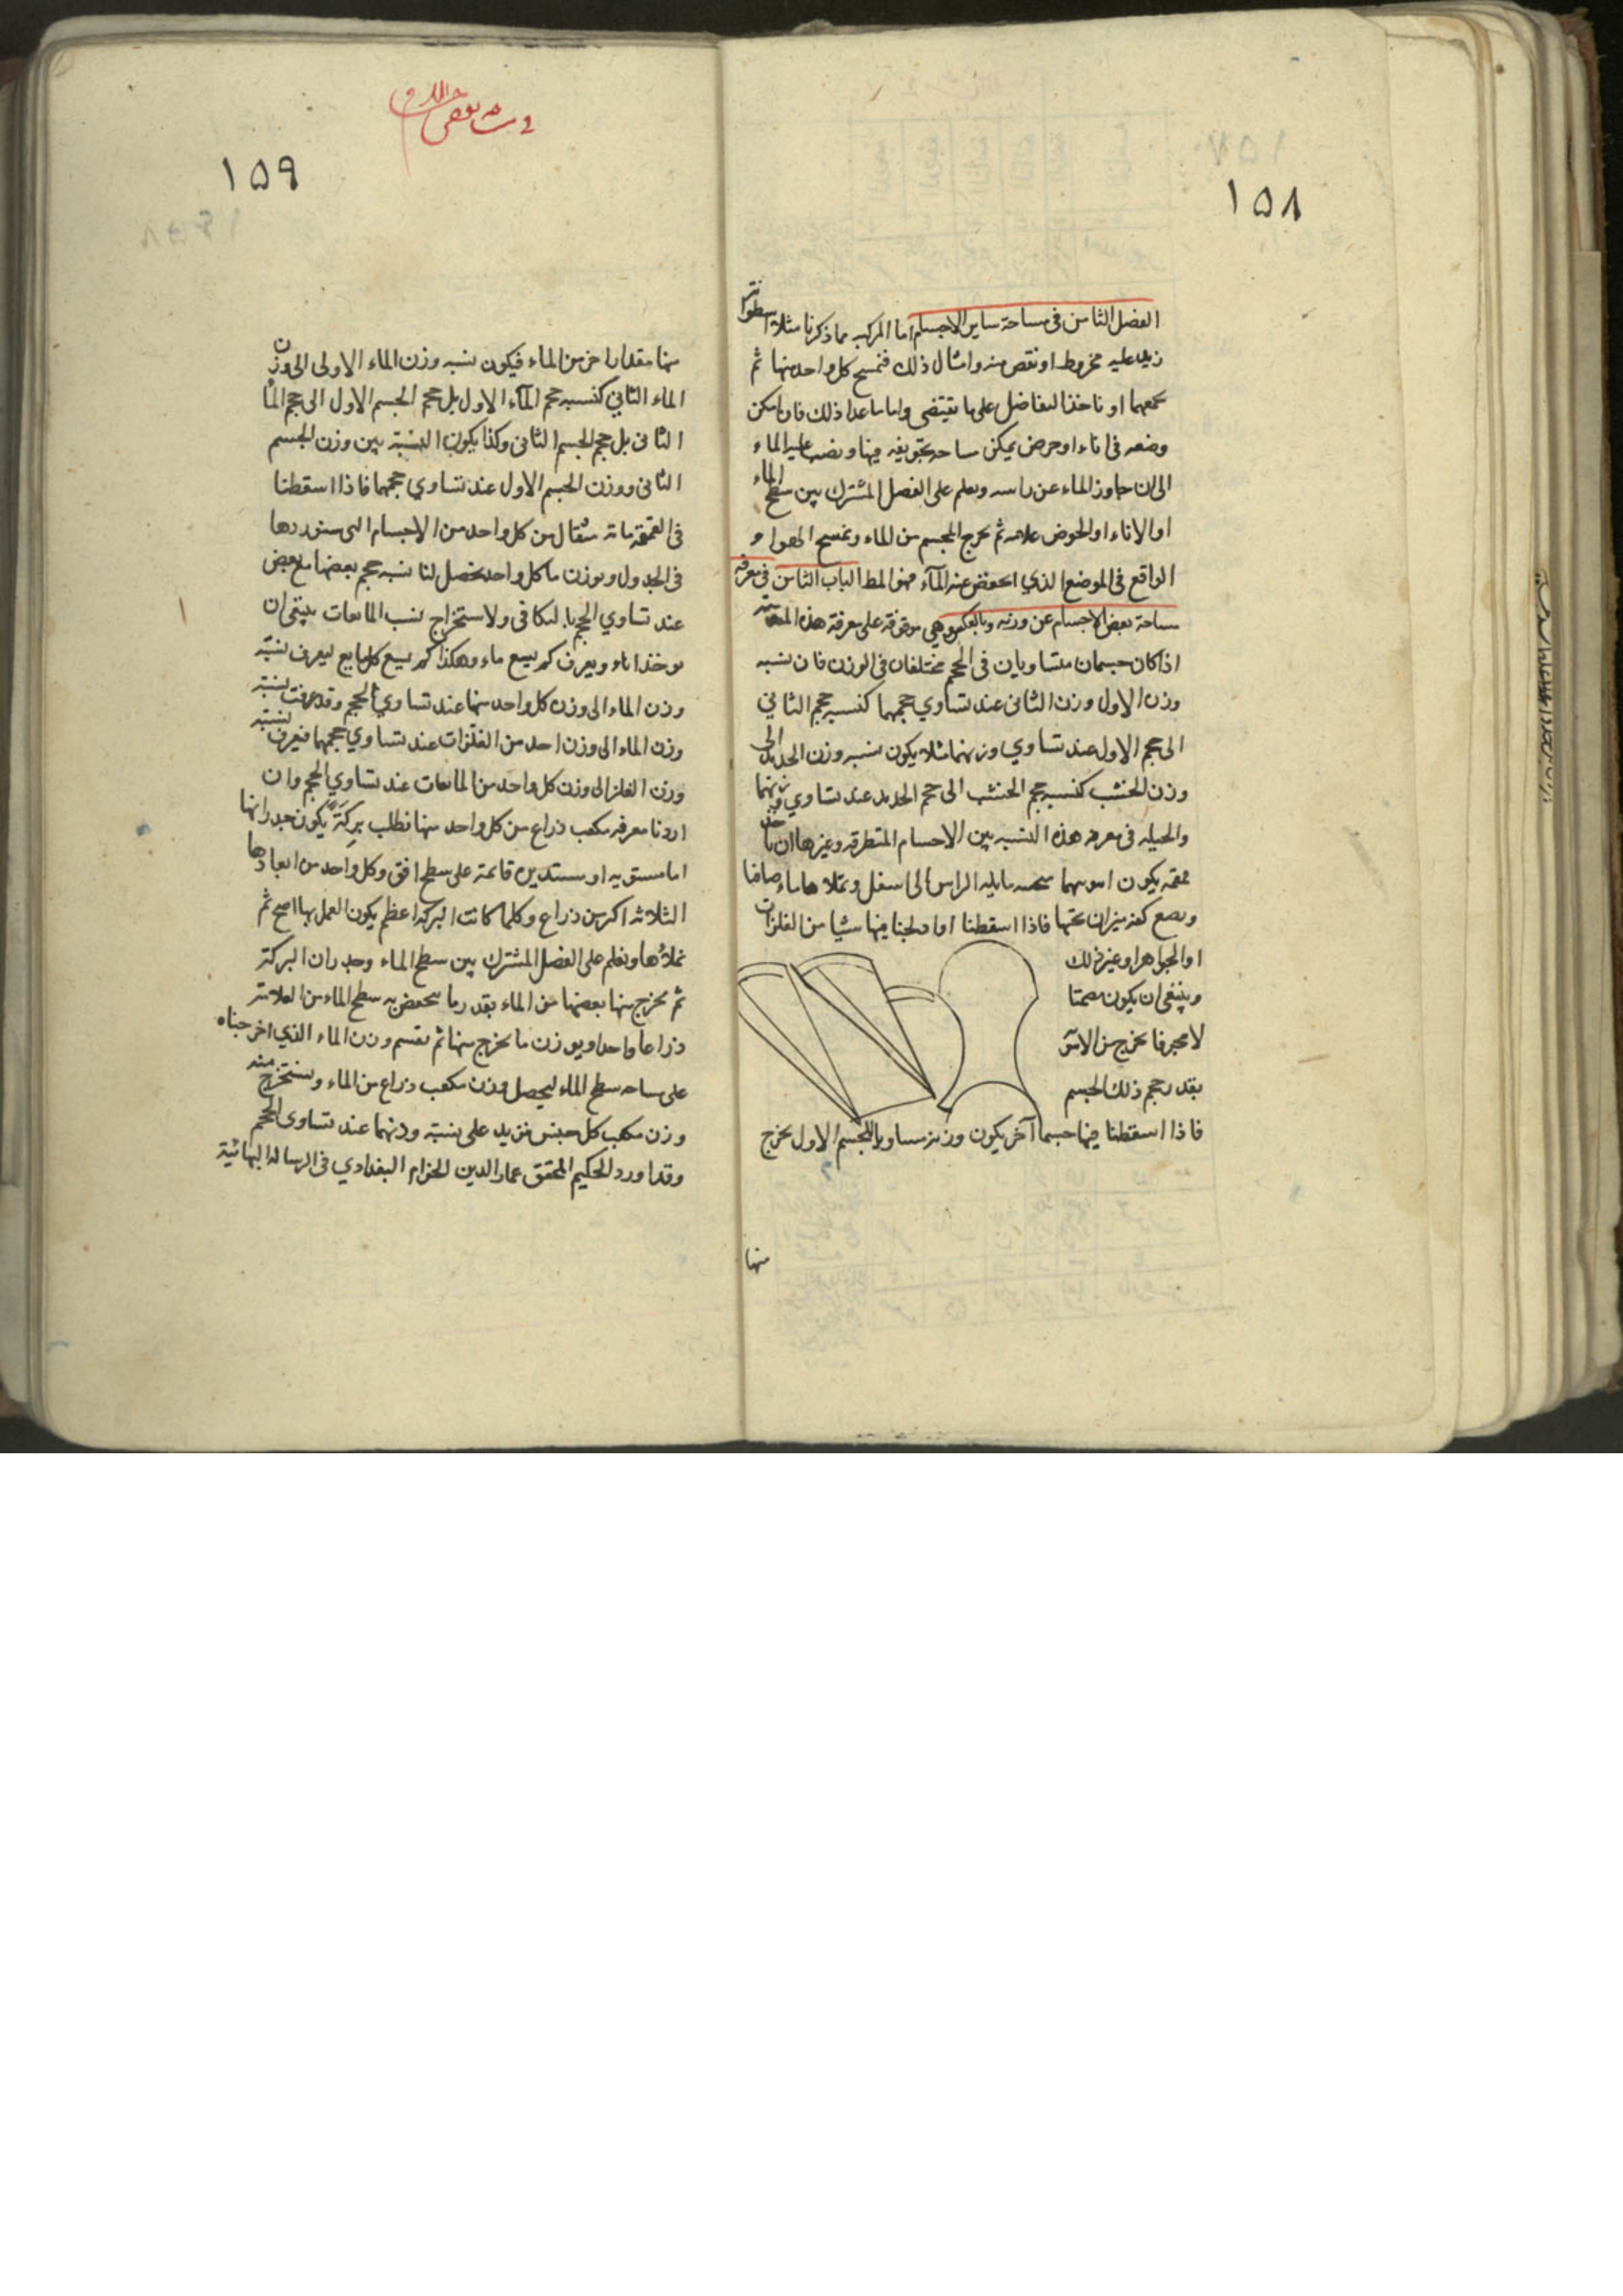 ١٥٨
الفصل الثامن فى مساحة ساير الاجسام اما المركب مما ذكرنا مثلا اسطوانة
زيد عليه مخروط او نقص منه وامثال ذلك فنمسح كل واحد منها ثم
نجمعهما او ناخذ التفاضل على ما يقتضى واما ما عدا ذلك فان امكن
وضعه فى اناء او حوض يمكن مساحة تجويفه فيها ونصب عليه الماء
الى ان جاوز الماء عن راسه ونعلم على الفصل المشترك بين سطح الماء
او الاناء او الحوض علامه ثم نخرج المجسم من الماء ونمسح الهواء
الواقع فى الموضع الذي انخفض عنه المآء فهو المط الباب الثامن فى معرفة
مساحة بعض الاجسام عن وزنه وبالعكس وهي موقوفة على معرفة هذه المقدمة
اذا كان جسمان متساويان فى الحجم مختلفان فى الوزن فان نسبه
وزن الاول وزن الثانى عند تساوي حجمهما كنسبه حجم الثاني
الى حجم الاول عند تساوي وزنهما مثلا يكون نسبه وزن الحديد الى
وزن الخشب كنسبه حجم الخشب الى حجم الحديد عند تساوي وزنهما
والحيله فى معرفه هذه النسبه بين الاجسام المتطرقه وغيرها ان ناخذ
قمقمه يكون مايله الراس الى اسفل ونملاها ماء صافيا
ونضع كفه ميزان تحتها فاذا اسقطنا او ادلجنا فيها شيا من الفلزات
او الجواهر او غير ذلك
وينبغى ان يكون مصمتا
لا مجوفا يخرج من
بقدر حجم ذلك الجسم
فاذا اسقطنا فيها جسما آخر يكون وزنه مساويا للجسم الاول يخرج
منها
١٥٩
منها مقدارا اخر من الماء فيكون نسبه وزن الماء الاولى الى وزن
الماء الثاني كنسبه حجم المآء الاول بل حجم الجسم الاول الى حجم الماء
الثانى بل حجم الجسم الثانى وكذا يكون النسبة بين وزن الجسم
الثانى ووزن الجسم الاول عند تساوي حجمهما فاذا اسقطنا
فى القمقمة ماته مثقال من كل واحد من الاجسام التى سنوردها
فى الجدول ونوزن ما كل واحد يحصل لنا نسبه حجم بعضها مع بعض
عند تساوي الحجم بالتكافى ولاستخراج نسب المايعات ينبغى ان
نوخذ اناء ويعرف كم يسع ماء وهكذا كم يسع كل مايع ليعرف نسبة
وزن الماء الى وزن كل واحد منها عند تساوي الحجم وقد عرفت نسبة
وزن الماء الى وزن احد من الفلزات عند تساوي حجمهما فيعرف نسبة
وزن الفلز الى وزن كل واحد من المايعات عند تساوي الحجم وان
اردنا معرفه مكعب ذراع من كل واحد منها نطلب بركة يكون جدرانها
اما مستويه او مستديره قائمة على سطح افق وكل واحد من ابعادها
الثلاثه اكبر من ذراع وكلما كانت البركه اعظم يكون العمل بها اصح ثم
نملأها ونعلم على الفصل المشترك بين سطح الماء وجدران البركة
ثم نخرج منها بعضها من الماء بقدر ما ينخفض به سطح الماء من العلامة
ذراعا واحدا ويوزن ما نخرج منها ثم نقسم وزن الماء الذي اخرجناه
على مساحه سطح الماء ليحصل وزن مكعب ذراع من الماء ونستخرج منه
وزن مكعب كل جنس نريد على نسبة وزنهما عند تساوى الحجم
وقد اورد الحكيم المحقق عماد الدين الخوام البغدادي فى الرساله البهائية